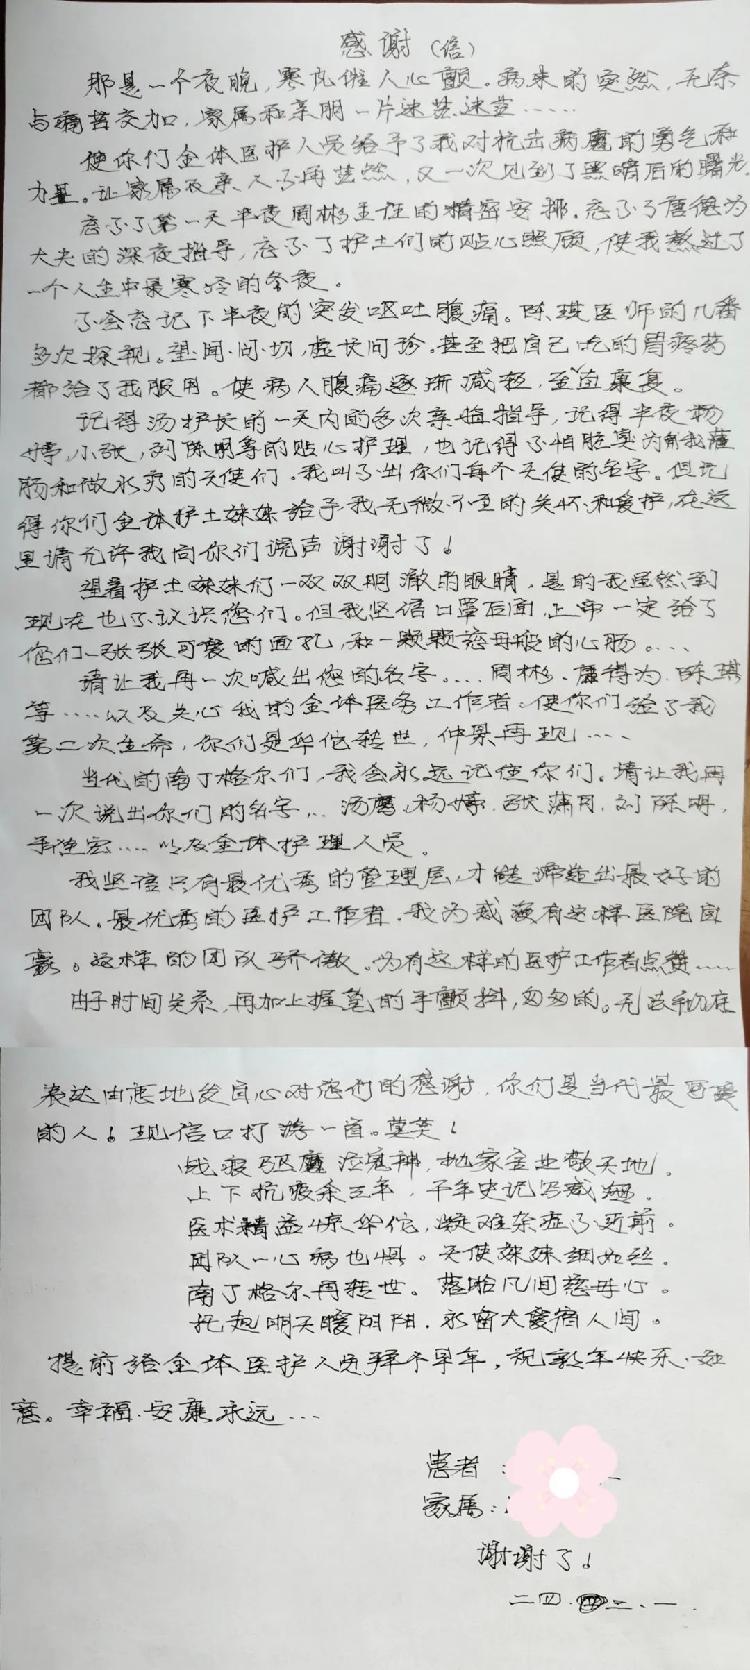 感谢(信)
那是一个夜晚,寒风催人心颤。病来的突然,无奈
与痛苦交加,家属和亲朋一片迷茫迷茫……
使你们全体医护人员给予了我对抗击病魔的勇气和
力量。让家属及亲人不再茫然,又一次见到了黑暗后的曙光
忘不了第一天半夜周彬主任的精密安排。忘不了唐德为
大夫的深夜指导,忘不了护士们的贴心照顾,使我熬过了
一个人生中最寒冷的冬夜。
不会忘记下半夜的突发呕吐腹痛。陈琪医师的几番
多次探视。望·闻·问·切,虚长问诊。甚至把自己吃的胃疼药
都给了我服用。使病人腹痛逐渐减轻,至
记得汤护长的一天内的多次亲临指导,记得半夜杨
婷,小张,刘陈明等的贴心护理,也记得不怕脏臭为我灌
肠和做水疗的天使们。我叫不出你们每个天使的名字。但记
得你们全体护士妹妹给予我无微不至的关怀和爱护,在这
里请允许我向你们说声谢谢了!
望着护士妹妹们一双双明澈的眼睛,是的我虽然到
现在也不认识您们。但我坚信口罩后面,上帝一定给了
您们一张张可爱的面孔,和一颗颗慈母般的心肠。…
请让我再一次喊出您的名字…. 周彬. 唐得为. 陈琪
等……以及关心我的全体医务工作者。使你们给了我
第二次生命,你们是华佗转世,仲景再现……
当代的南丁格尔们,我会永远记住你们。请让我再
一次说出你们的名字… 汤鹰, 杨婷. 张蒲月. 刘陈明,
……以及全体护理人员。
我坚信只有最优秀的管理层,才能缔造出最好的
团队。最优秀的医护工作者. 我为咸
有这样医院自
豪。这样的团队骄傲。为有这样的医护工作者点赞……
由于时间关系,再加上握笔的手颤抖,匆匆的。无法
表达由衷地发自心对您们的感谢,你们是当代最可爱
的人!现信口打游一首。莫笑!
战疫驱魔泣鬼神,抛家舍业敬天地。
上下抗疫余三年,千年史记写咸
医术精益惊华佗,疑难杂症不近前。
团队一心病也惧。天使妹妹细如丝。
南丁格尔再转世。落胎凡间慈母心。
托起明天暖阴阳. 永留大爱宿人间。
提前给全体医护人员拜个早年,祝新年快乐.如
意。幸福.安康永远…
患者:
家属:
谢谢了!
二四.二.一.